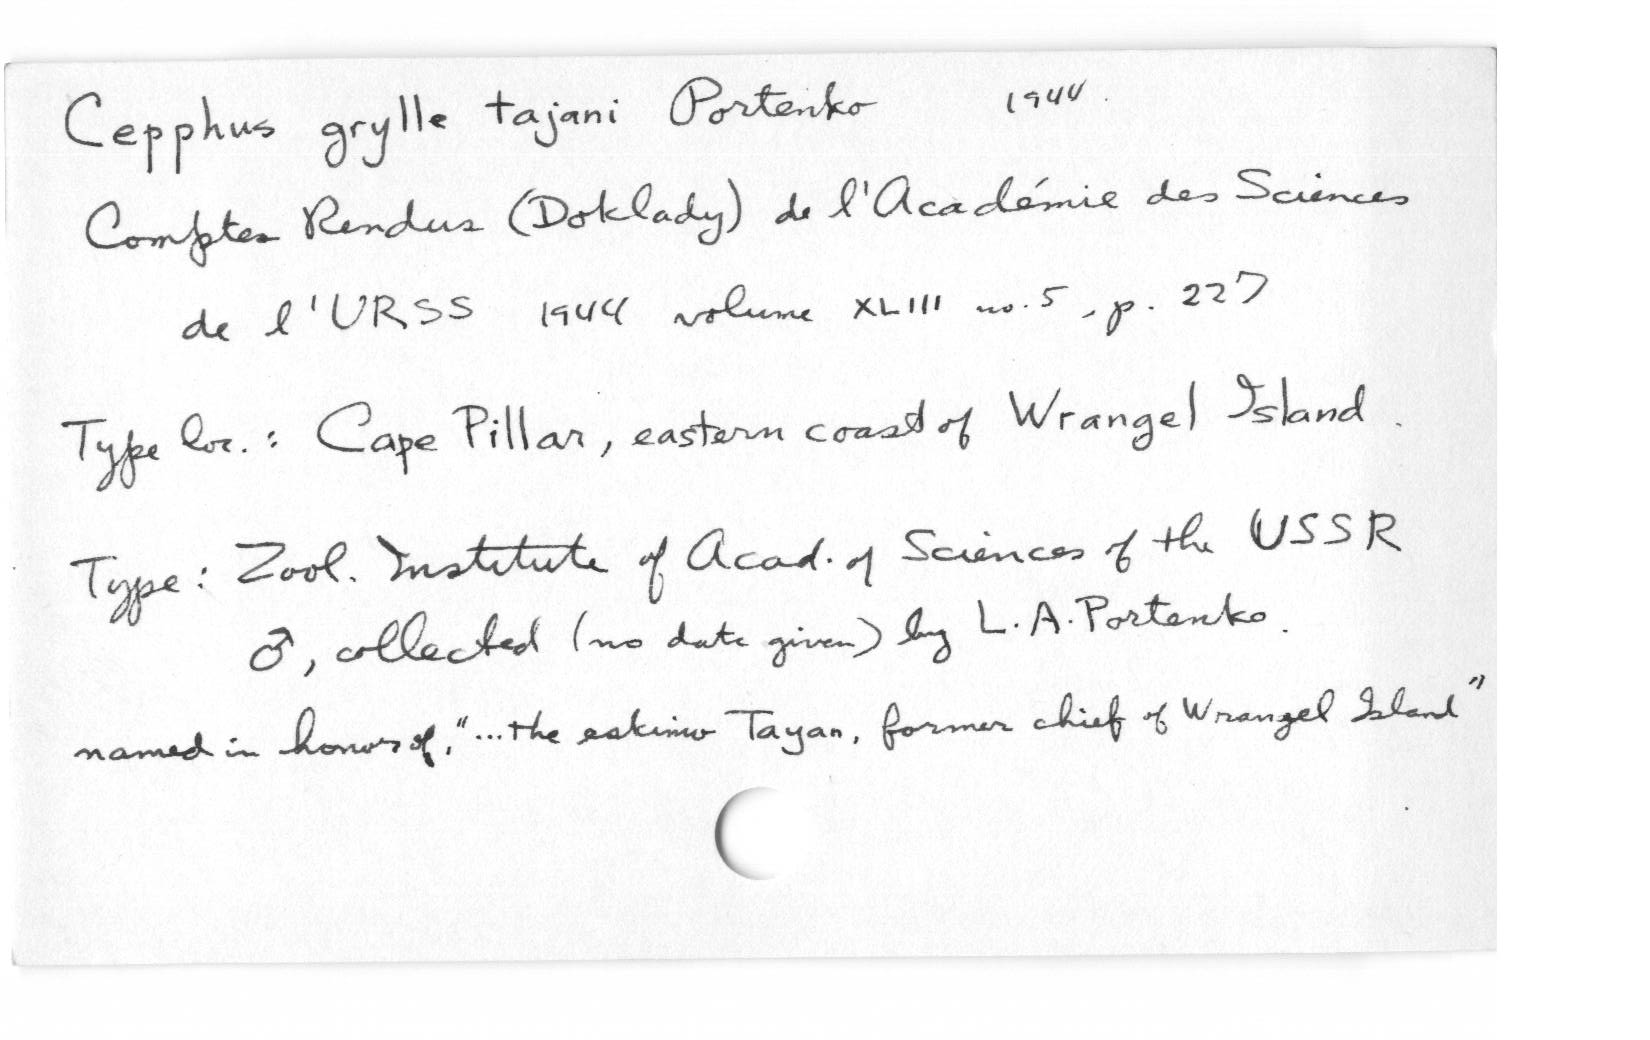 Cepphus grylle tajani Portenko 1944.
Comptes Rendus (Doklady) de l'Académie des Sciences
de l'URSS 1944 volume XLIII no. 5, p. 227
Type loc.: Cape Pillar, eastern coast of Wrangel Island.
Type: Zool. Institute of Acad. of Sciences of the USSR
♂, collected (no date given) by L.A. Portenko.
named in honor of, "...the eskimo Tayan, former chief of Wrangel Island"